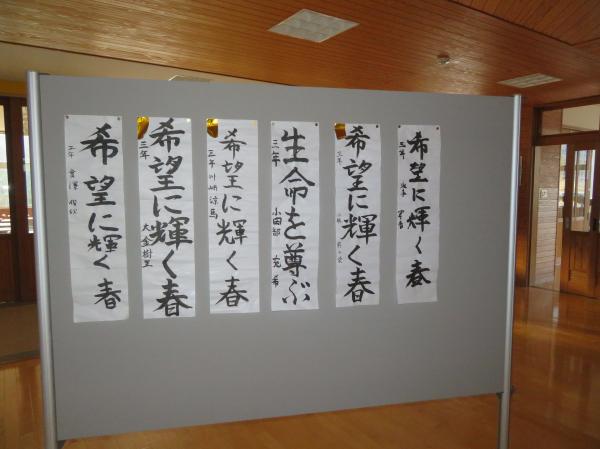 希望に輝く春
三年
希望に輝く春
三年
希望に輝く春
三年
小田部
生命を尊ぶ
三年 川崎 涼馬
希望に輝く春
三年
大金 樹里
希望に輝く春
三年
希望に輝く春